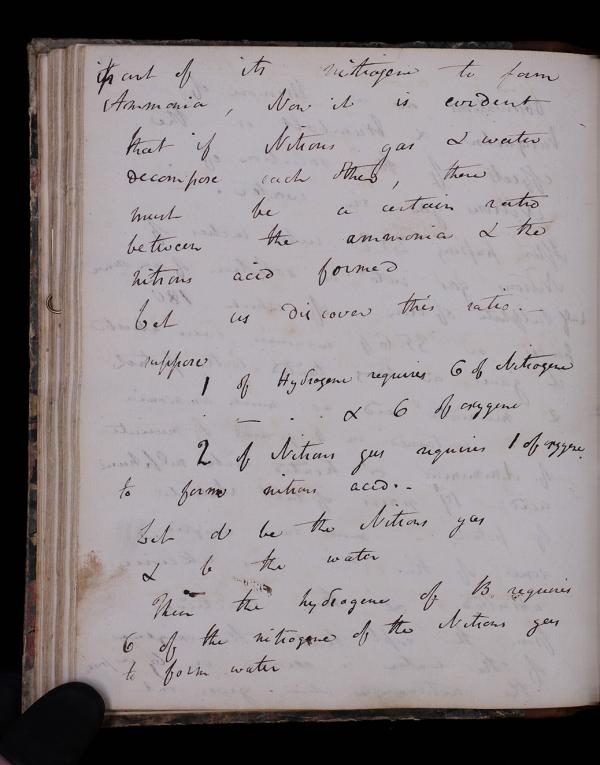 part of its nitrogene to form
Ammonia, Now it is evident
that if Nitrous gas & water
decompose each other, there
must be a certain ratio
between the ammonia & the
nitrous acid formed
Let us discover this ratio. —
suppose
1 of Hydrogene requires 6 of Nitrogene
— . . & 6 of oxygene
2 of Nitrous gas requires 1 of oxygene
to form nitrous acid. -
Let d be the Nitrous gas
& b the water
Then the hydrogene of B requires
6 of the nitrogene of the Nitrous gas
to form water